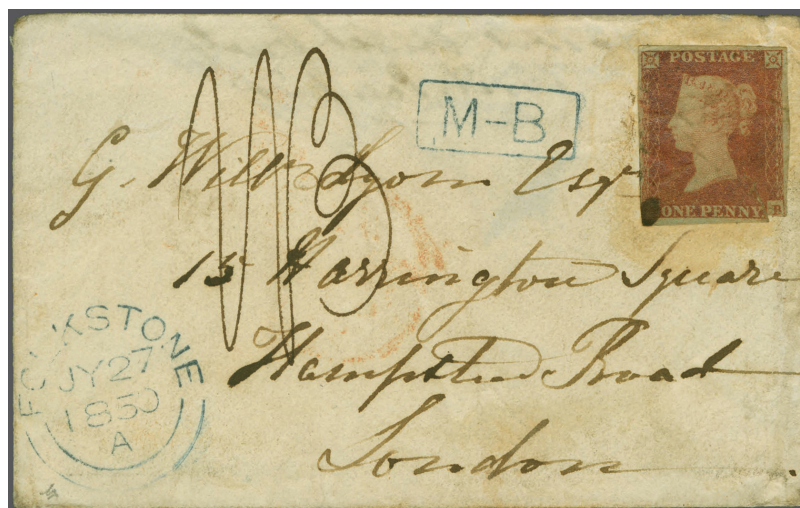 POSTAGE
ONE PENNY
B
M-B
G. Willm Lyom Esqr
15 Harrington Square
Hampsted Road
London
FOLKSTONE
JY 27
1850
A